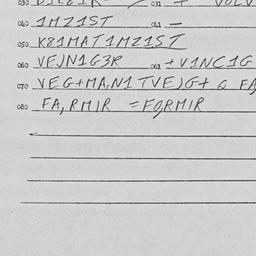 030 031 +
040 1MZ1ST 041 —
050 K81MAT1MZ1ST
060 VEJN1G3R 061 +V1NC1G
070 VEG+MA,N1TVEJG+ & FA
080 FA,RMIR = FO,RMIR